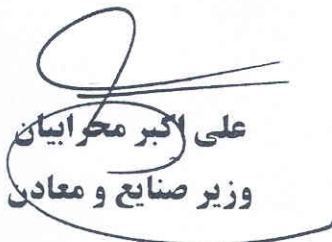 علی اکبر محرابیان
وزیر صنایع و معادن